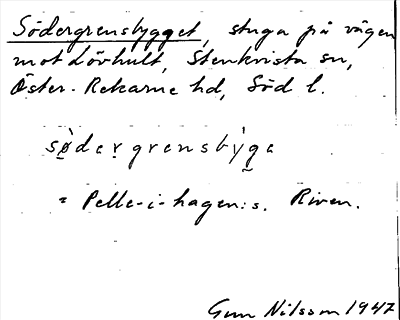 Södergrensbygget, stuga på vägen
mot Lövhult, Stenkvista sn,
Öster-Rekarne hd, Söd l.
sø̀dergrensby̍ge
= Pelle-i-hagen:s. Riven.
Gun Nilsson 1947